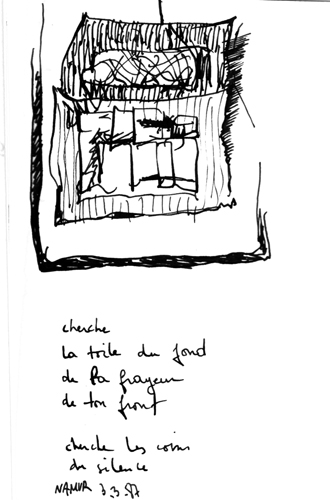 cherche
la toile du fond
de la frayeur
de ton front
cherche les coins
du silence
NAMUR 3.3.87